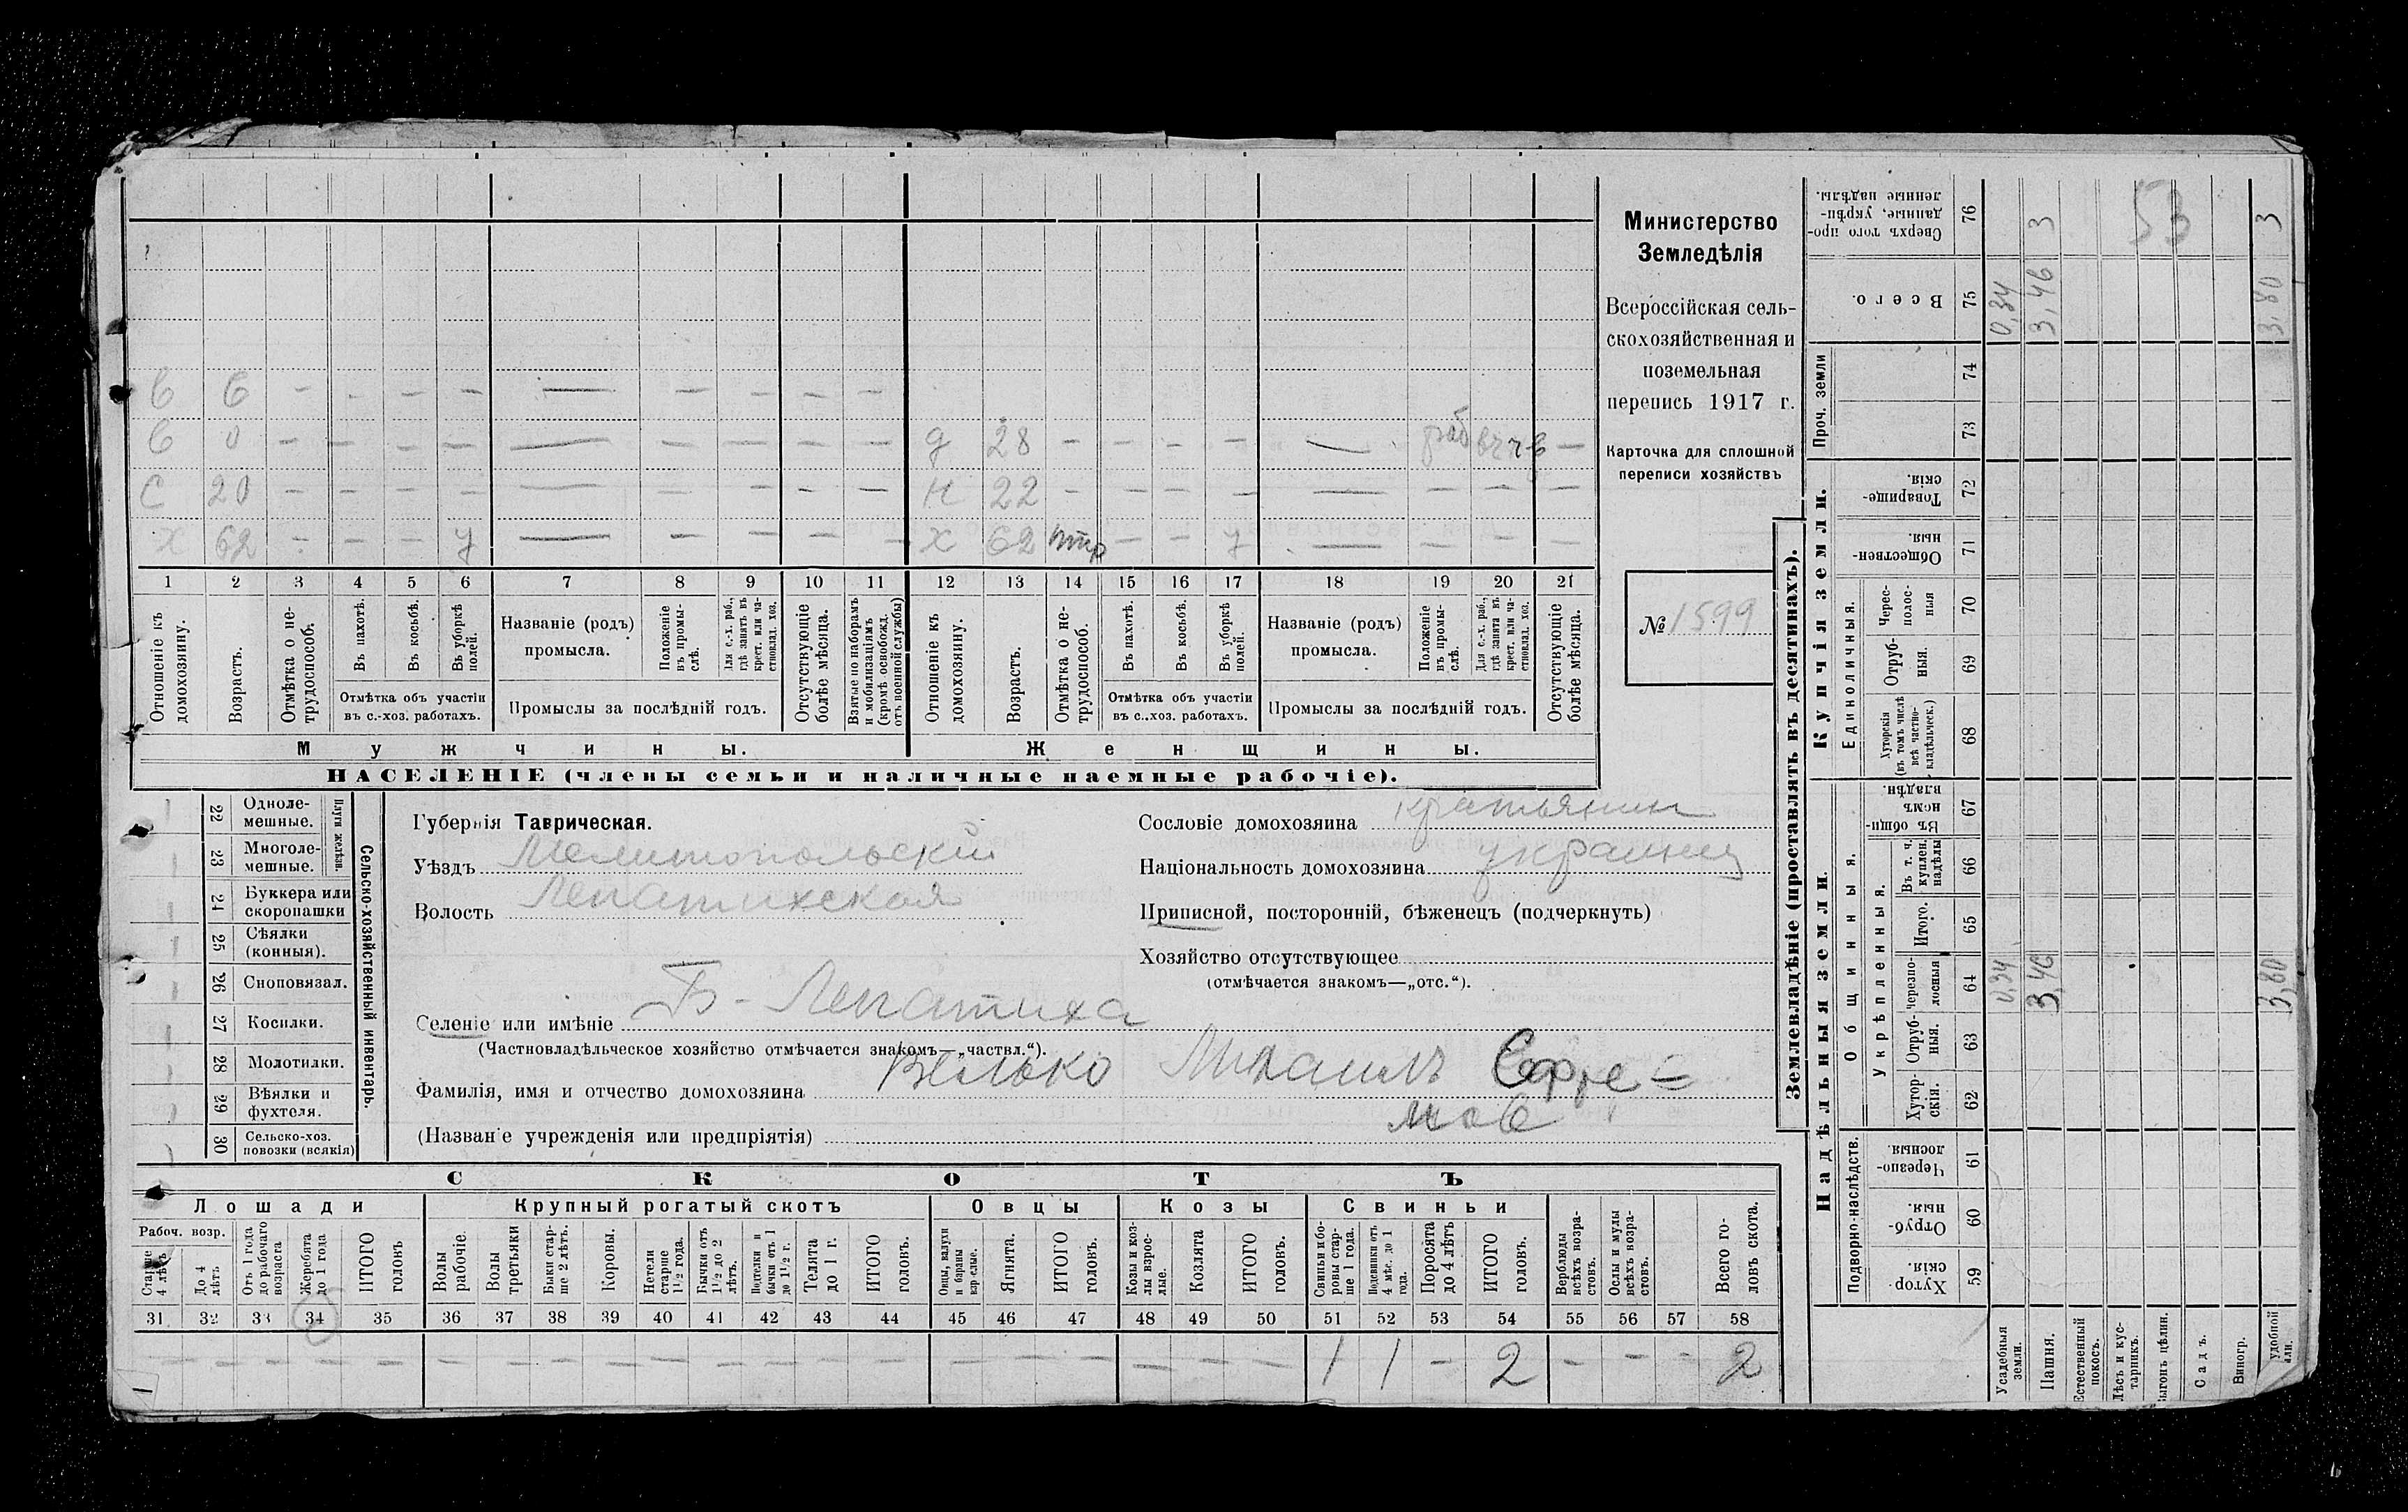 Министерство
Земледѣлія
Всероссійская сель-
скохозяйственная и
поземельная
перепись 1917 г.
Карточка для сплошной
переписи хозяйствъ
№ 1599
в 6 - - - - — - - - -
в 0 - - - - — - - - - д 28 - - - - — раб —
с 20 - - - - — - - - - н 22 - - - - — - - -
х 62 - - - у — - - - - х 62 - - у — - - -
1 2 3 4 5 6 7 8 9 10 11 12 13 14 15 16 17 18 19 20 21
Отношеніе къ домохозяину.
Возрастъ.
Отмѣтка о не-трудоспособ.
Въ пахотѣ.
Въ косьбѣ.
Въ уборкѣ полей.
Отмѣтка объ участіи
въ с.-хоз. работахъ.
Названіе (родъ)
промысла.
Положеніе въ промы-слѣ.
Для с.-х. раб., гдѣ занятъ въ крест. или ча-стновлад. хоз.
Промыслы за послѣдній годъ.
Отсутствующіе болѣе мѣсяца.
Взятые по наборамъ и мобилизаціямъ (кромѣ освобожд. отъ военной службы)
Отношеніе къ домохозяину.
Возрастъ.
Отмѣтка о не-трудоспособ.
Въ пахотѣ.
Въ косьбѣ.
Въ уборкѣ полей.
Отмѣтка объ участіи
въ с.-хоз. работахъ.
Названіе (родъ)
промысла.
Положеніе въ промы-слѣ.
Для с.-х. раб., гдѣ занята въ крест. или ча-стновлад. хоз.
Промыслы за послѣдній годъ.
Отсутствующіе болѣе мѣсяца.
Мужчины. Женщины.
НАСЕЛЕНІЕ (члены семьи и наличные наемные рабочіе).
22 Одноле-мешные.
23 Многоле-мешные.
Плуги желѣзн.
24 Буккера или скоропашки
25 Сѣялки (конныя).
26 Сноповязал.
27 Косилки.
28 Молотилки.
29 Вѣялки и фухтеля.
30 Сельско-хоз. повозки (всякія)
Сельско-хозяйственный инвентарь.
Губернія Таврическая.
Уѣздъ Мелитопольскій
Волость Лепатихская
Селеніе или имѣніе Б - Лепатиха
(Частновладѣльческое хозяйство отмѣчается знакомъ—„частвл.“).
Фамилія, имя и отчество домохозяина Михаилъ Ефре-
мов
(Названіе учрежденія или предпріятія)
Сословіе домохозяина
Національность домохозяина украинец
Приписной, посторонній, бѣженецъ (подчеркнуть)
Хозяйство отсутствующее
(отмѣчается знакомъ—„отс.“).
СКОТЪ
Лошади Крупный рогатый скотъ Овцы Козы Свиньи
Рабоч. возр.
Старше 4 лѣтъ
До 4 лѣтъ
Отъ 1 года до рабочаго возраста
Жеребята до 1 года
ИТОГО головъ
Волы рабочіе.
Волы третьяки
Быки стар-ше 2 лѣтъ.
Коровы.
Нетели старше 1½ года.
Бычки отъ 1½ до 2 лѣтъ.
Подтелки и бычки отъ 1 до 1½ г.
Телята до 1 г.
ИТОГО головъ.
Овцы, валухи и бараны взрослые.
Ягнята.
ИТОГО головъ.
Козы и коз-лы взрос-лые.
Козлята
ИТОГО головъ.
Свиньи и бо-ровы стар-ше 1 года.
Подсвинки отъ 4 мѣс. до 1 года.
Поросята до 4 лѣтъ
ИТОГО головъ.
Верблюды всѣхъ возра-стовъ.
Ослы и мулы всѣхъ возра-стовъ.
Всего го-ловъ скота.
31 32 33 34 35 36 37 38 39 40 41 42 43 44 45 46 47 48 49 50 51 52 53 54 55 56 57 58
- - - - - - - - - - - - - - - - - - - - 1 1 - 2 - - - 2
Землевладѣніе (проставлять въ десятинахъ).
Надѣльныя земли.
Купчія земли.
Проч. земли
Подворно-наслѣдств.
Общинныя.
Укрѣпленныя.
Единоличныя.
Хутор-скія. 59
Отруб-ныя. 60
Черезпо-лосныя 61
Хутор-скія. 62
Отруб-ныя. 63
Черезпо-лосныя 64 0,34 3,46 3,80
Итого. 65
Въ т. ч. куплен. надѣлы 66
Въ общин-номъ владѣн. 67
Хуторскія (въ томъ числѣ всѣ частно-владѣльческ.) 68
Отруб-ныя. 69
Черес-полос-ныя 70
Обществен-ныя. 71
Товарище-скія. 72
73
74
Всего. 75 0,34 3,46 3,80
Сверхъ того про-данные, укрѣп-ленные надѣлы. 76 3 53 3
Усадебныя земли.
Пашня.
Естественный покосъ.
Лѣсъ и кус-тарникъ.
Выгонъ цѣлин.
Садъ.
Виногр.
удобной